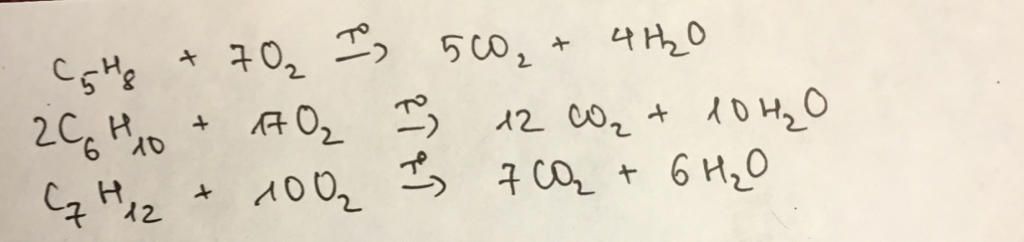 C₅H₈ + 7O₂ →(T°) 5CO₂ + 4H₂O
2C₆H₁₀ + 17O₂ →(T°) 12 CO₂ + 10H₂O
C₇H₁₂ + 10O₂ →(T°) 7CO₂ + 6H₂O